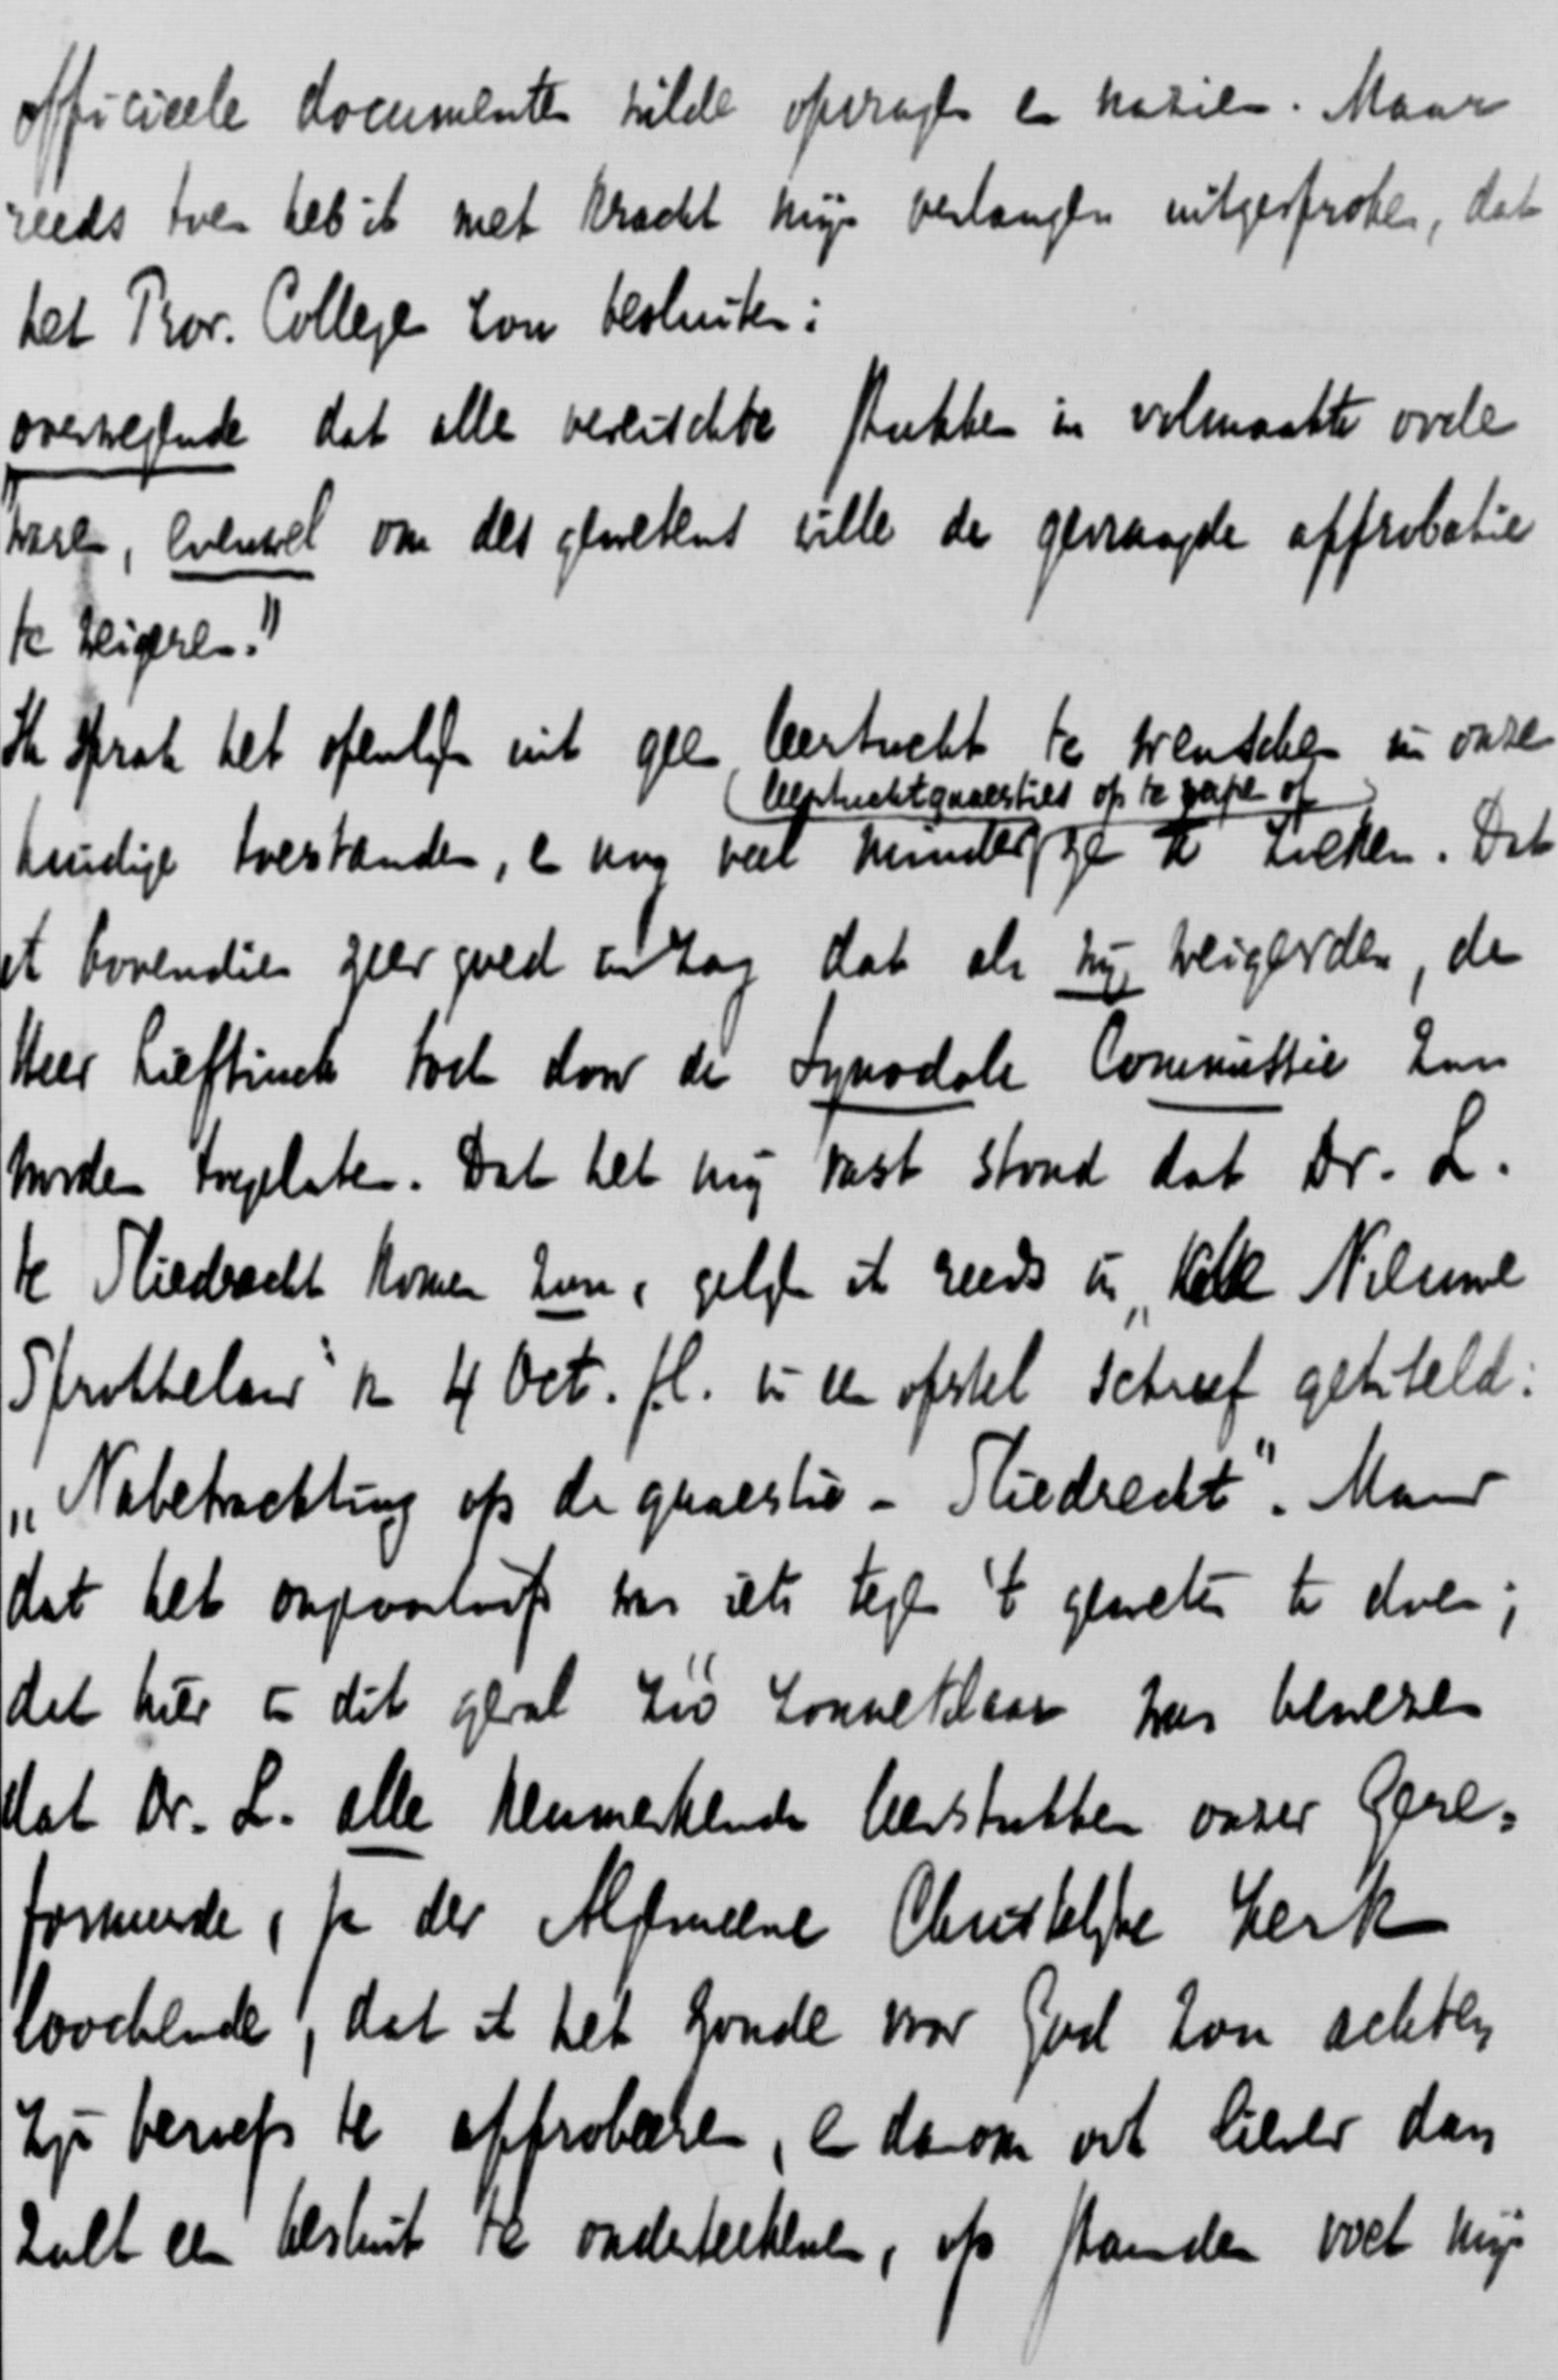 officieele documenten wilde opvragen en nazien. Maar
reeds toen heb ik met kracht mijn verlangen uitgesproken, dat
het Prov. College zou besluiten:
"overwegende dat alle vereischte stukken in volmaakte orde
waren, evenwel om des gewetens wille de gevraagde approbatie
te weigeren."
Ik sprak het openlijk uit geen leertucht te wenschen in onze
(leertuchtquaesties op te rapen of
huidige toestanden, en nog veel minder ze te zoeken. Dat
ik bovendien zeer goed inzag dat als wij weigerden, de
Heer Lieftinck toch door de Synodale Commissie zou
worden toegelaten. Dat het mij vast stond dat Dr. L.
te Sliedrecht komen zou, gelijk ik reeds in "Kerk Nieuwe
Sprokkelaar" van 4 Oct. pl. in een opstel schreef getiteld:
"Nabetrachting op de quaestie - Sliedrecht". Maar
dat het ongeoorloofd was iets tegen 't geweten te doen;
dat hier in dit geval zóó zonneklaar was bewezen
dat Dr. L. alle kenmerkende leerstukken onzer Gere=
formeerde, ja der Algemeene Christelijke Kerk
loochende, dat ik het zonde voor God zou achten
zijn beroep te approbeeren, en daarom ook liever dan
zulk een besluit te onderteekenen, op staanden voet mijn